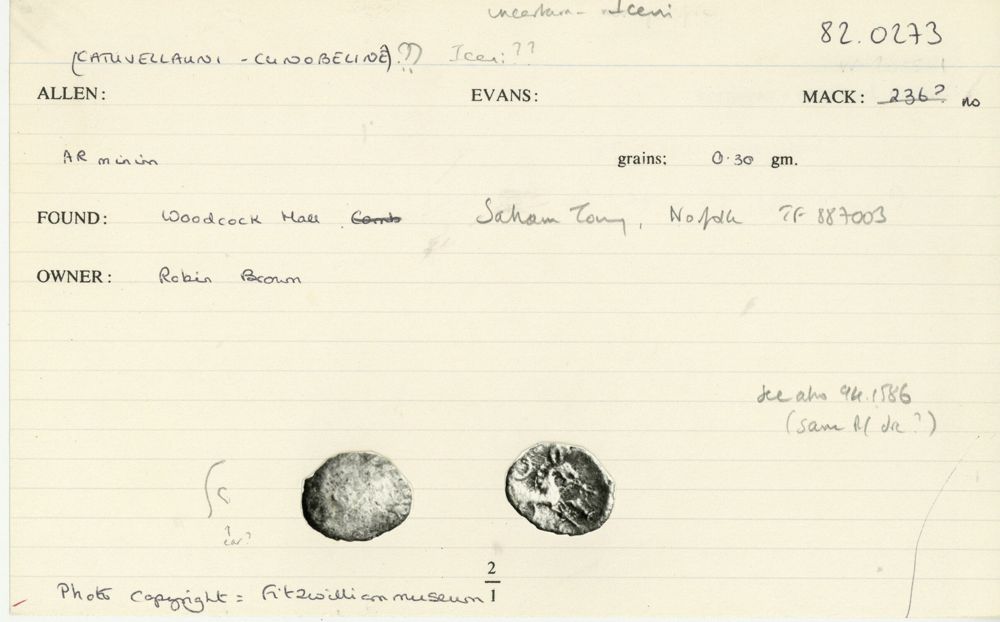 uncertain - Iceni
82.0273
(CATUVELLAUNI - CUNOBELINE)?? Iceni??
ALLEN: EVANS: MACK: 236? no
AR minim grains: 0.30 gm.
FOUND: Woodcock Hall Saham Toney, Norfolk TF 887003
OWNER: Robin Brown
See also 94.1586
(same R/ die?)
↑
ear?
2
1
Photo copyright = Fitzwilliam museum